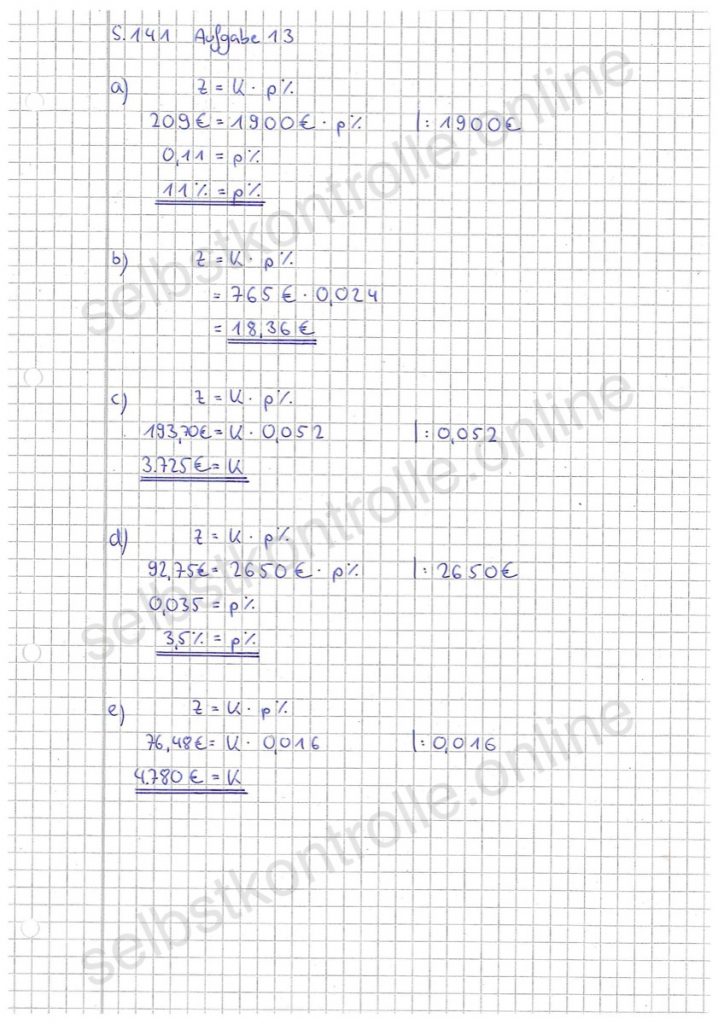 S. 141 Aufgabe 13
a) Z = K · p%
209€ = 1900€ · p% |: 1900€
0,11 = p%
11% = p%
b) Z = K · p%
= 765 € · 0,024
= 18,36 €
c) Z = K · p%
193,70€ = K · 0,052 |: 0,052
3.725€ = K
d) Z = K · p%
92,75€ = 2650€ · p% |: 2650€
0,035 = p%
3,5% = p%
e) Z = K · p%
76,48€ = K · 0,016 |: 0,016
4.780€ = K
selbstkontrolle.online
selbstkontrolle.online
selbstkontrolle.online